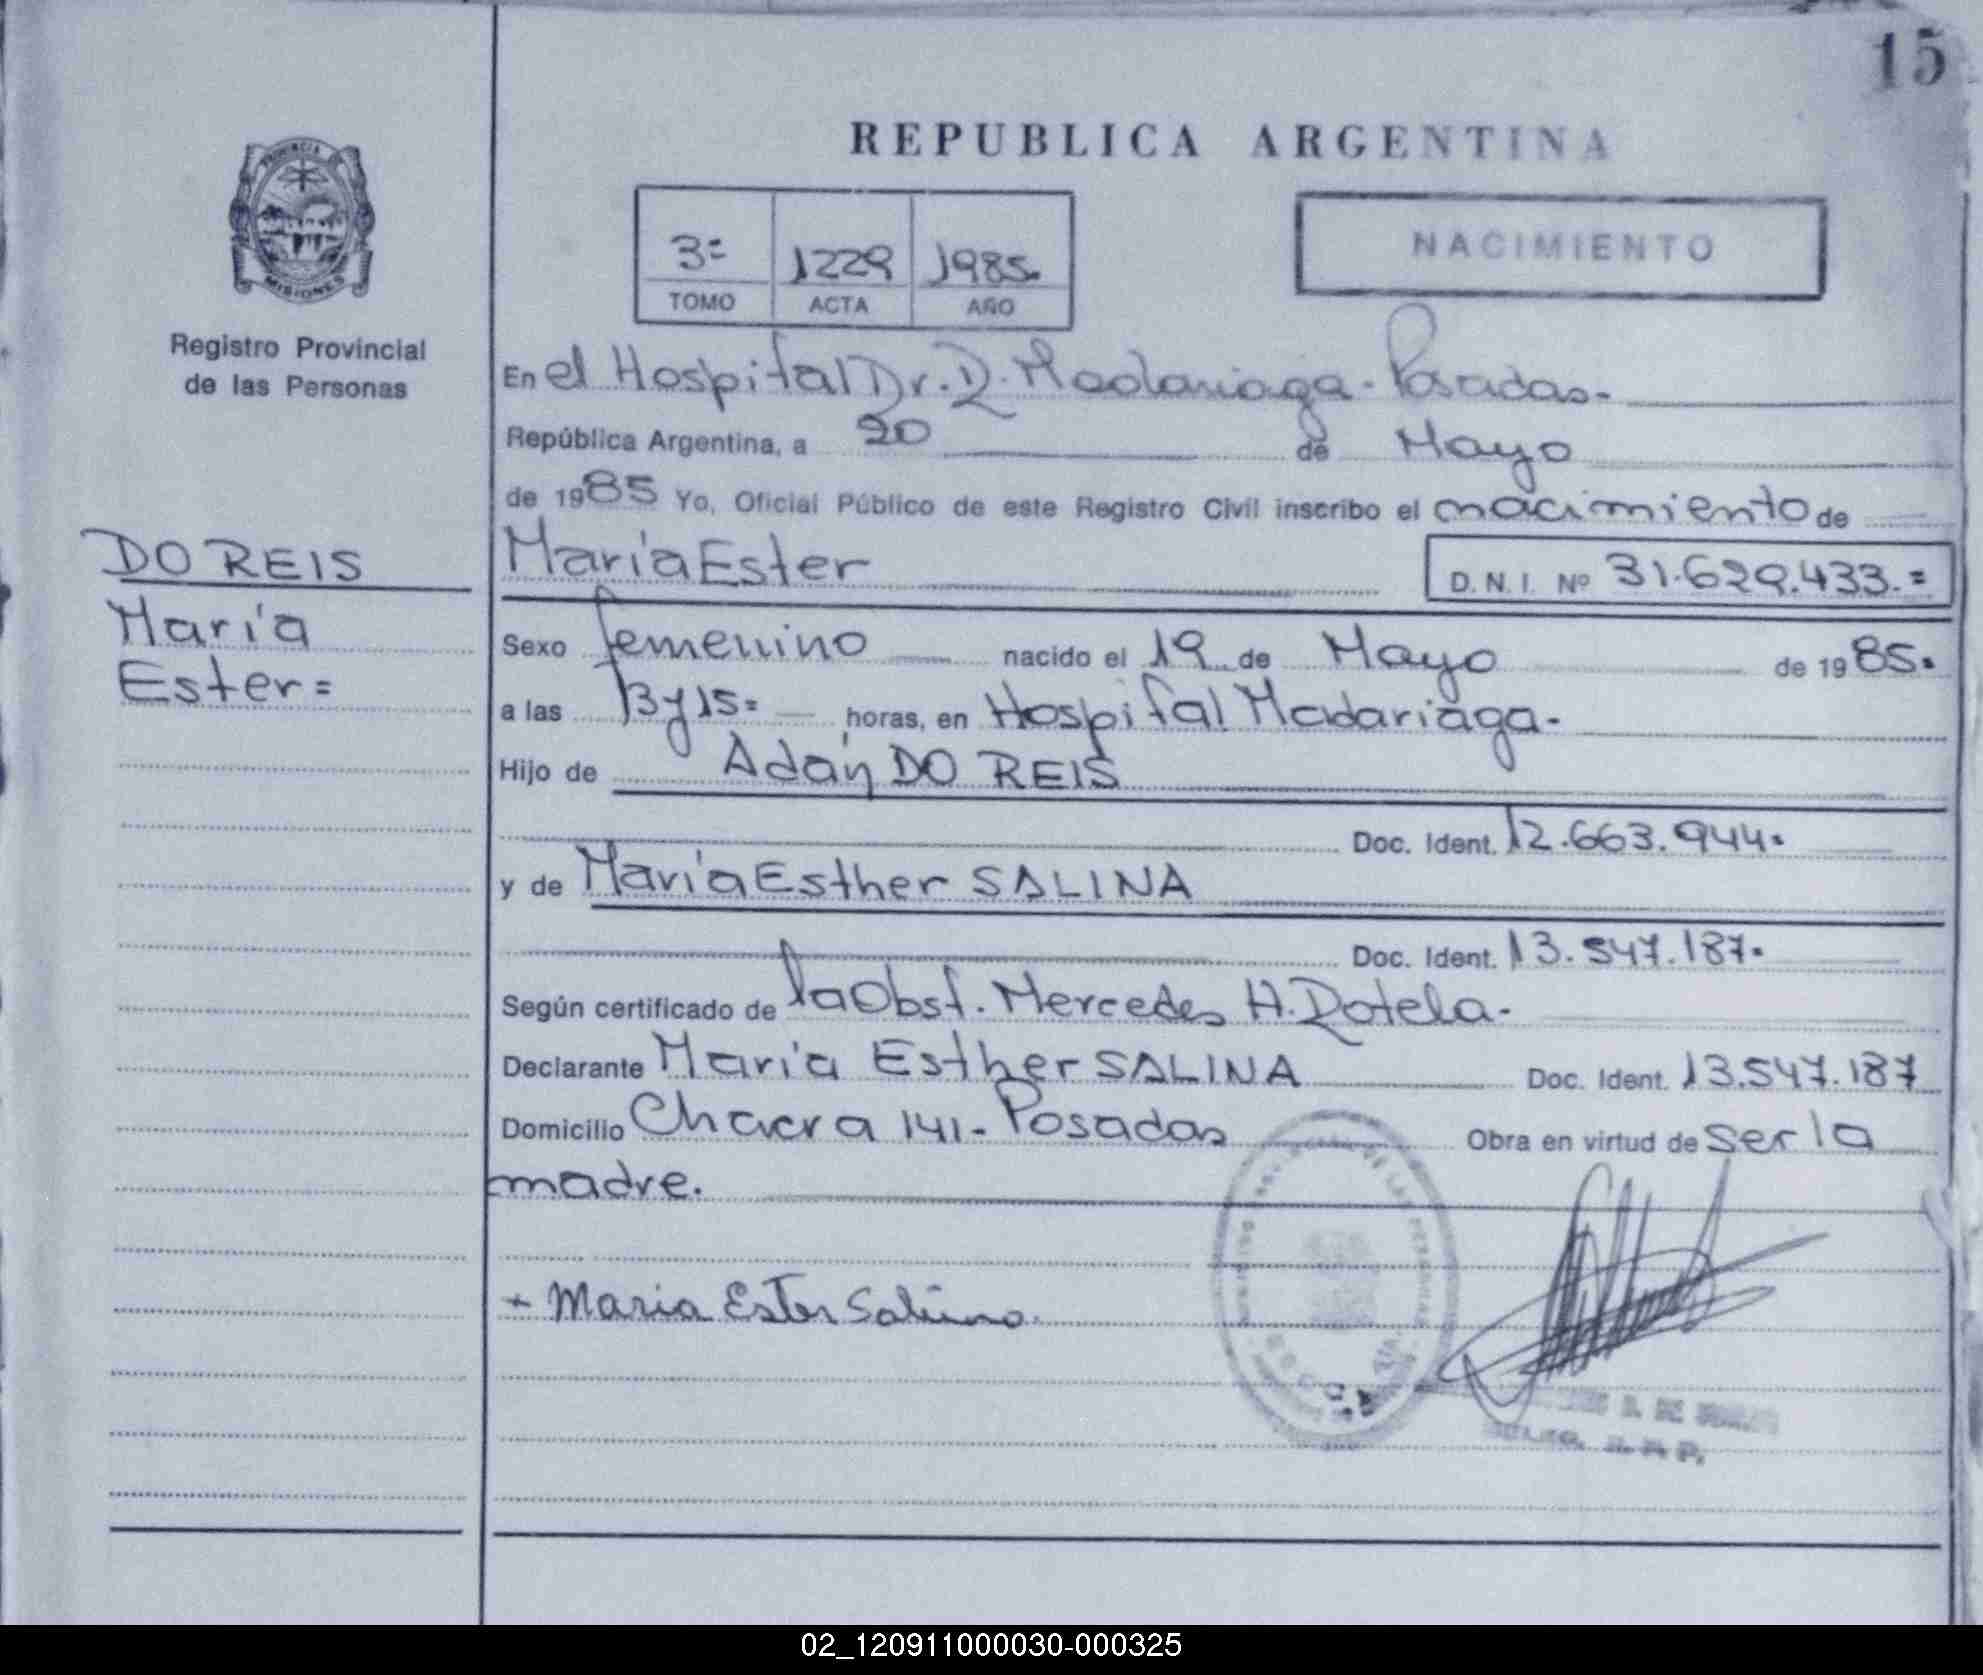 15
REPUBLICA ARGENTINA
PROVINCIA DE
MISIONES
3º 1229 1985.
TOMO ACTA AÑO
NACIMIENTO
Registro Provincial
de las Personas
En el Hospital Dr. R. Madariaga - Posadas.-
República Argentina, a 20 de Mayo
de 1985 Yo, Oficial Público de este Registro Civil inscribo el nacimiento de
DO REIS
María
Ester=
María Ester D.N.I. Nº 31.629.433.=
Sexo femenino nacido el 19 de Mayo de 1985.
a las 13 y 15= horas, en Hospital Madariaga.-
Hijo de Adán DO REIS
Doc. Ident. 12.663.944.
y de María Esther SALINA
Doc. Ident. 13.547.187.
Según certificado de la Obst. Mercedes H. Rotela.-
Declarante María Esther SALINA Doc. Ident. 13.547.187
Domicilio Chacra 141 - Posadas Obra en virtud de ser la
madre.
+ Maria Ester Salina.
02_120911000030-000325